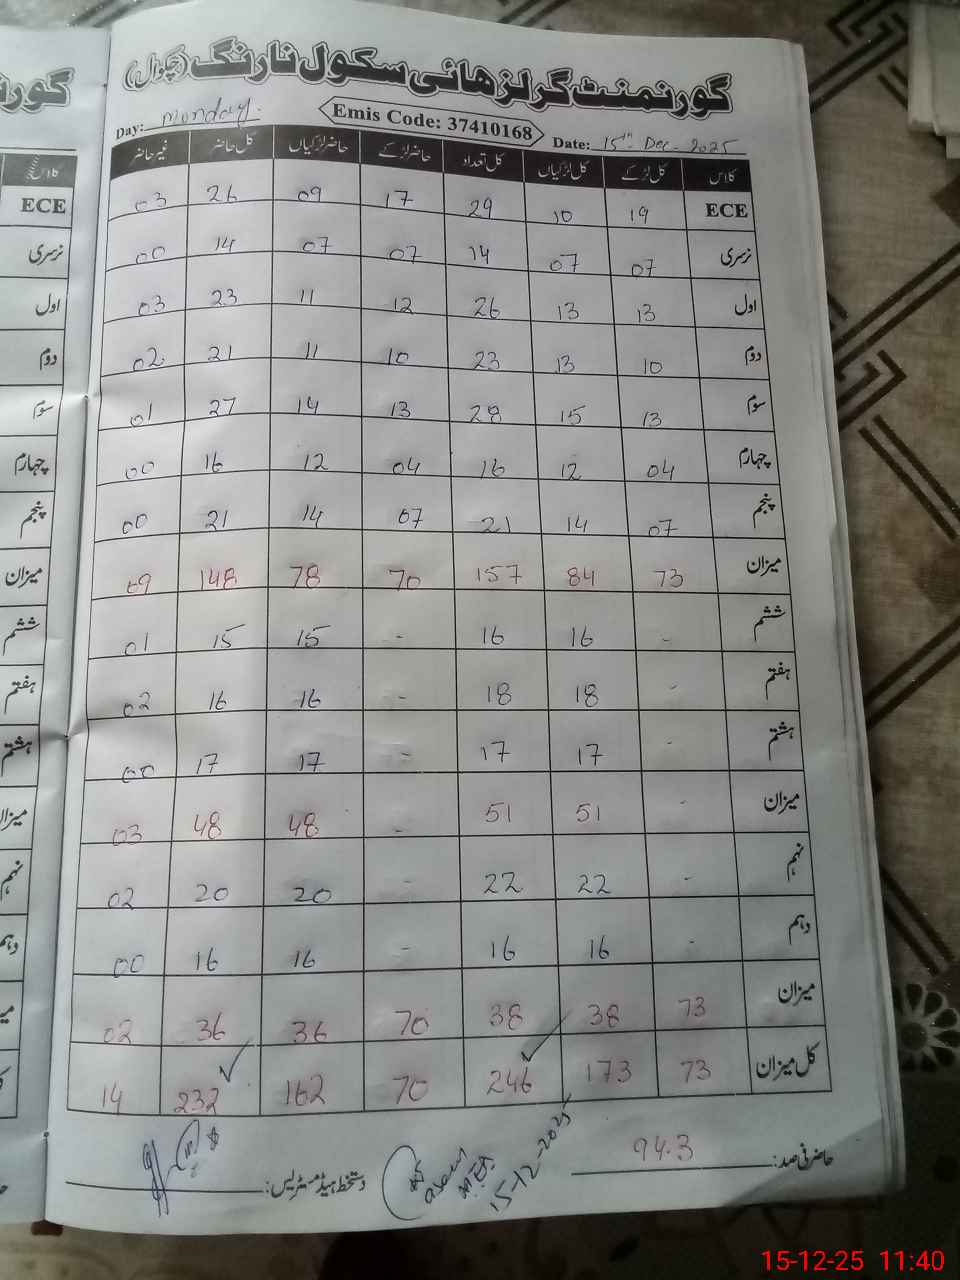 گورنمنٹ گرلز ھائی سکول نارنگ (چکوال)
Day: Monday. Emis Code: 37410168 Date: 15th Dec - 2025
کلاس کل لڑکے کل لڑکیاں کل تعداد حاضر لڑکے حاضر لڑکیاں کل حاضر غیر حاضر
ECE 19 10 29 17 09 26 03
نرسری 07 07 14 07 07 14 00
اول 13 13 26 12 11 23 03
دوم 10 13 23 10 11 21 02
سوم 13 15 28 13 14 27 01
چہارم 04 12 16 04 12 16 00
پنجم 07 14 21 07 14 21 00
میزان 73 84 157 70 78 148 09
ششم - 16 16 - 15 15 01
ہفتم - 18 18 - 16 16 02
ہشتم - 17 17 - 17 17 00
میزان - 51 51 - 48 48 03
نہم - 22 22 - 20 20 02
دہم - 16 16 - 16 16 00
میزان 73 38 38 70 36 36 02
کل میزان 73 173 246 70 162 232 14
حاضر فی صد: 94.3
دستخط ہیڈ مسٹریس:
MEA
15-12-2025
گورن
کلاس
ECE
نرسری
اول
دوم
سوم
چہارم
پنجم
میزان
ششم
ہفتم
ہشتم
میزان
نہم
دہم
15-12-25 11:40